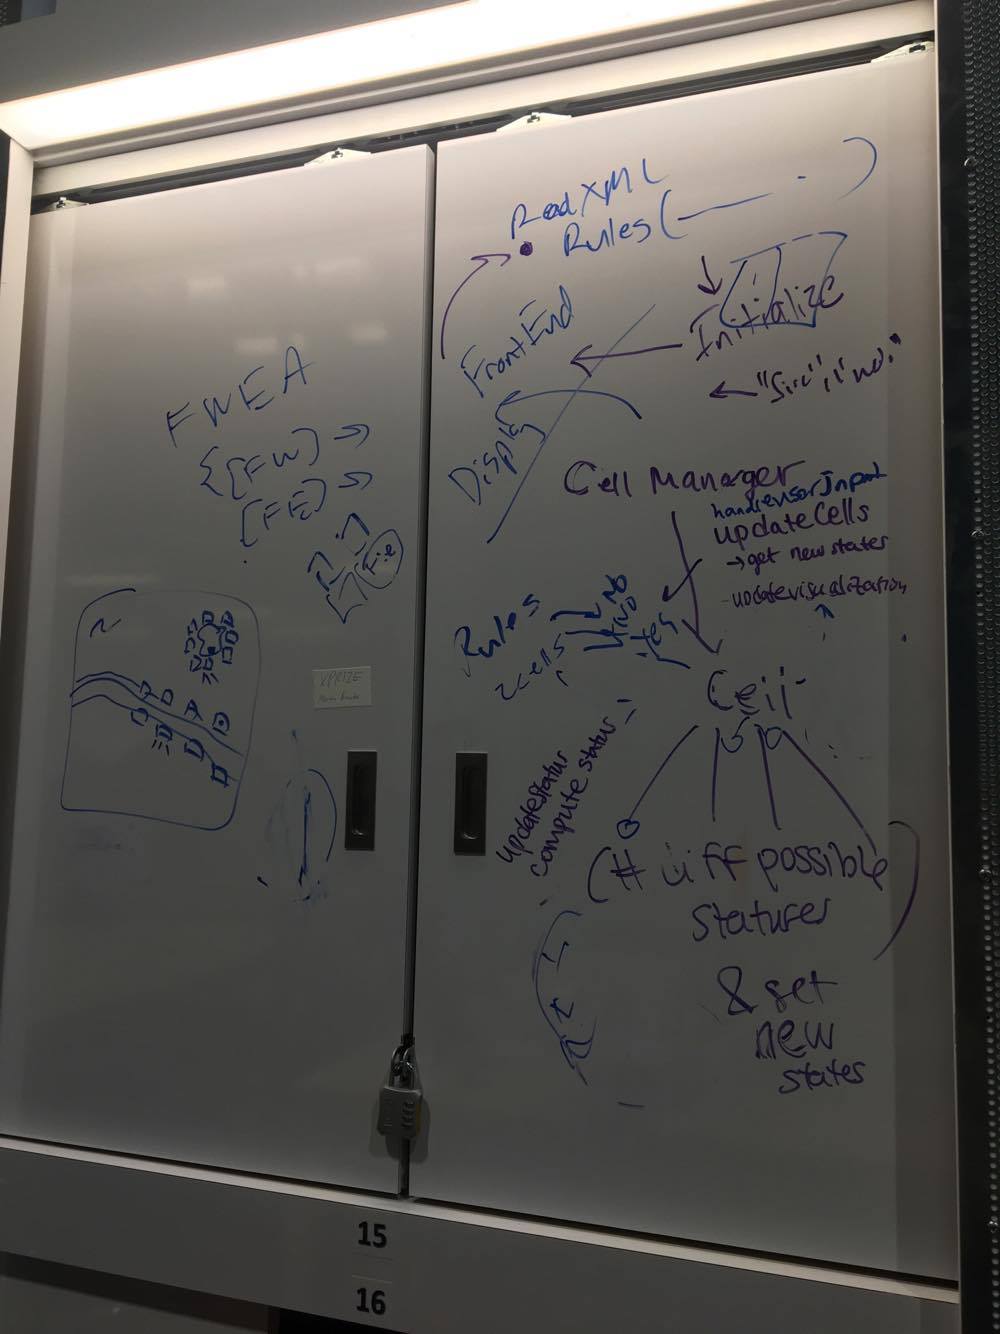 FWEA
{[FW] →
[FE] →
Fie
N
XPRIZE
Read XML
Rules( )
Initialize
FrontEnd
Display
Cell Manager
updateCells
→get new states
-updatevisualization
Rules
cells
No
Yes
Cell
updatestatus
compute status
(# diff possible
statuses
& set
new
states
15
16